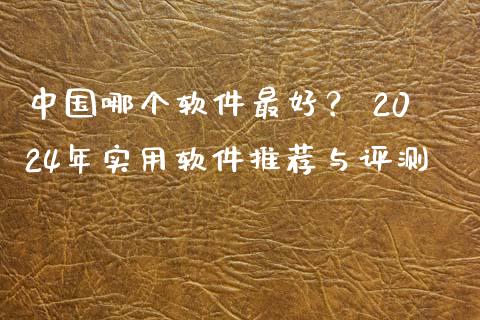 中国哪个软件最好？ 20
24年实用软件推荐与评测